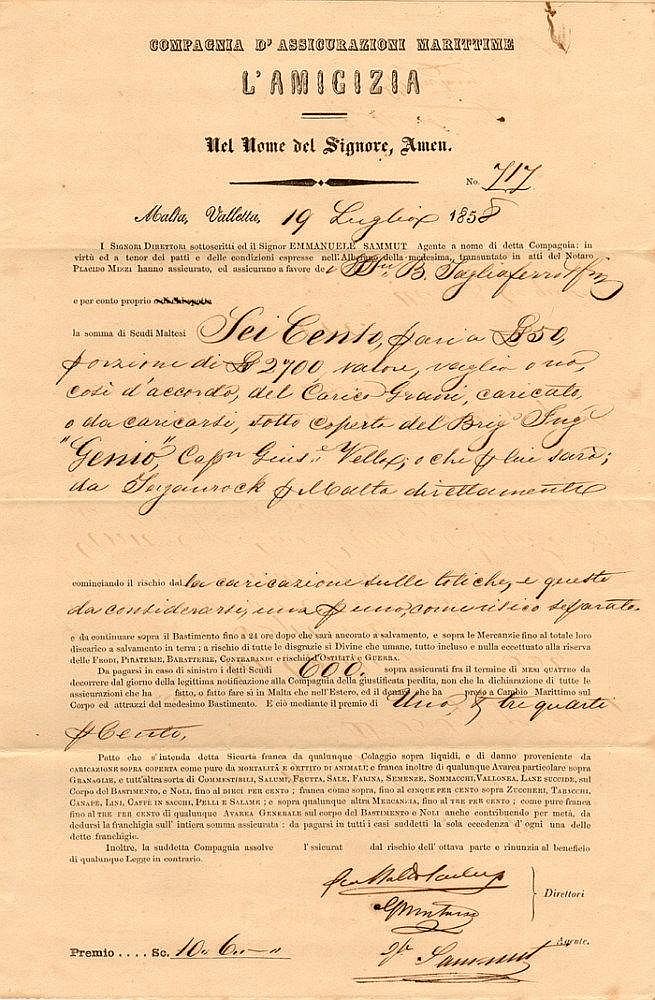 COMPAGNIA D'ASSICURAZIONI MARITTIME
L'AMICIZIA
Nel Nome del Signore, Amen.
No. 717
Malta, Valletta, 19 Luglio 1858
I SIGNORI DIRETTORI sottoscritti ed il Signor EMMANUELE SAMMUT Agente a nome di detta Compagnia: in
virtù ed a tenor dei patti e delle condizioni espresse nell'Alberano della medesima, transuntato in atti del Notaro
PLACIDO MIZZI hanno assicurato, ed assicurano a favore de i B. Tagliaferro
e per conto proprio
la somma di Scudi Maltesi Sei Cento, pari a £50,
porzione di £2700 valore, vaglia o nò,
così d'accordo, del Carico Grani, caricato,
o da caricarsi, sotto coperta del Brig. Ing.
"Genio", Cap.n Gius.e Vella; o che p lui sarà;
da p Malta direttamente
cominciando il rischio dal la caricazione sulle e queste
da considerarsi, una p una, come risico separato.
e da continuare sopra il Bastimento fino a 24 ore dopo che sarà ancorato a salvamento, e sopra le Mercanzie fino al totale loro
discarico a salvamento in terra; a rischio di tutte le disgrazie si Divine che umane, tutto incluso e nulla eccettuato alla riserva
delle FRODI, PIRATERIE, BARATTERIE, CONTRABANDI e rischio d'OSTILITÀ E GUERRA.
Da pagarsi in caso di sinistro i detti Scudi 600. sopra assicurati fra il termine di MESI QUATTRO da
decorrere dal giorno della legittima notificazione alla Compagnia della giustificata perdita, non che la dichiarazione di tutte le
assicurazioni che ha fatto, o fatto fare sì in Malta che nell'Estero, ed il denaro che ha preso a Cambio Marittimo sul
Corpo ed attrazzi del medesimo Bastimento. E ciò mediante il premio di Uno, & tre quarti
p Cento,
Patto che s'intenda detta Sicurtà franca da qualunque Colaggio sopra liquidi, e di danno proveniente da
CARICAZIONE SOPRA COPERTA come pure da MORTALITÀ E GETTITO DI ANIMALI; e franca inoltre di qualunque Avarea particolare sopra
GRANAGLIE, e tutt'altra sorta di COMMESTIBILI, SALUMI, FRUTTA, SALE, FARINA, SEMENZE, SOMMACCHI, VALLONEA, LANE SUCCIDE, sul
Corpo del BASTIMENTO, e NOLI, fino al DIECI PER CENTO; franca come sopra, fino al CINQUE PER CENTO sopra ZUCCHERI, TABACCHI,
CANAPE, LINI, CAFFÈ IN SACCHI, PELLI E SALAME; e sopra qualunque altra MERCANZIA, fino al TRE PER CENTO; come pure franca
fino al TRE PER CENTO di qualunque AVAREA GENERALE sul corpo del BASTIMENTO e NOLI anche contribuendo per metà, da
dedursi la franchigia sull' intiera somma assicurata: da pagarsi in tutti i casi suddetti la sola eccedenza d'ogni una delle
dette franchigie.
Inoltre, la suddetta Compagnia assolve l'ssicurat dal rischio dell'ottava parte e rinunzia al beneficio
di qualunque Legge in contrario.
Direttori
Agente.
Sammut
Premio .... Sc. 10 " 6 "